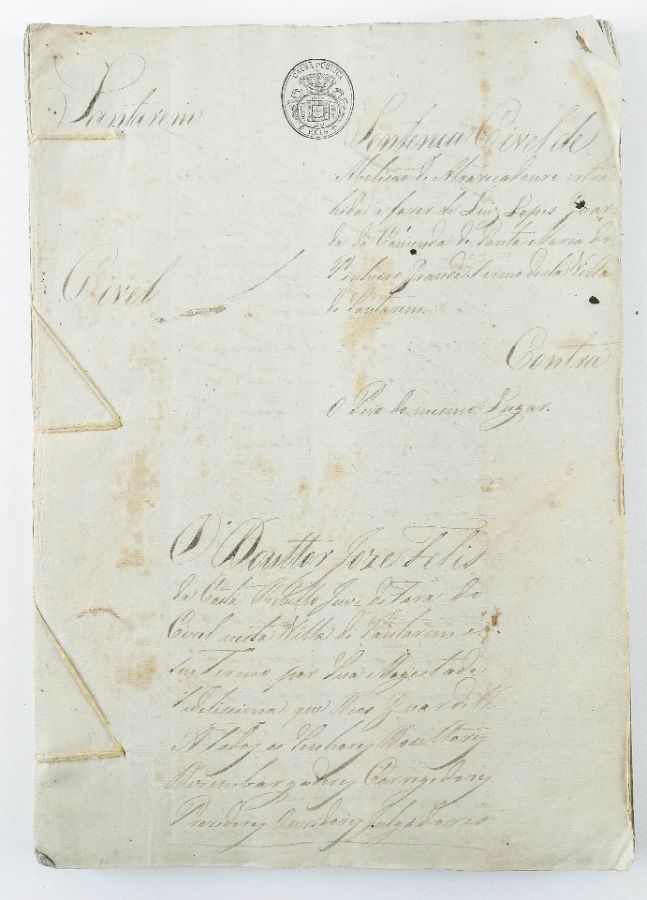 CAUSA PUBLICA
Santarem
Sentença Civel de
Abolição de Atravecadouro extra
hida a favor de Luiz Lopes Guar-
da da Comenda de Santa Maria do
Pinheiro Grande Termo desta Villa
de Santarem.
Civel
Contra
O Povo do mesmo Lugar.
O Douttor Joze Felis
da Costa Rebello Juiz de Fora do
Civel nesta Villa de Santarem e
seu Termo por Sua Magestade
Fidelissima que Deos Guarde Vª
A todos os Senhores Douttores
Dezembargadores Corregedores
Provedores Ouvidores Julgadores